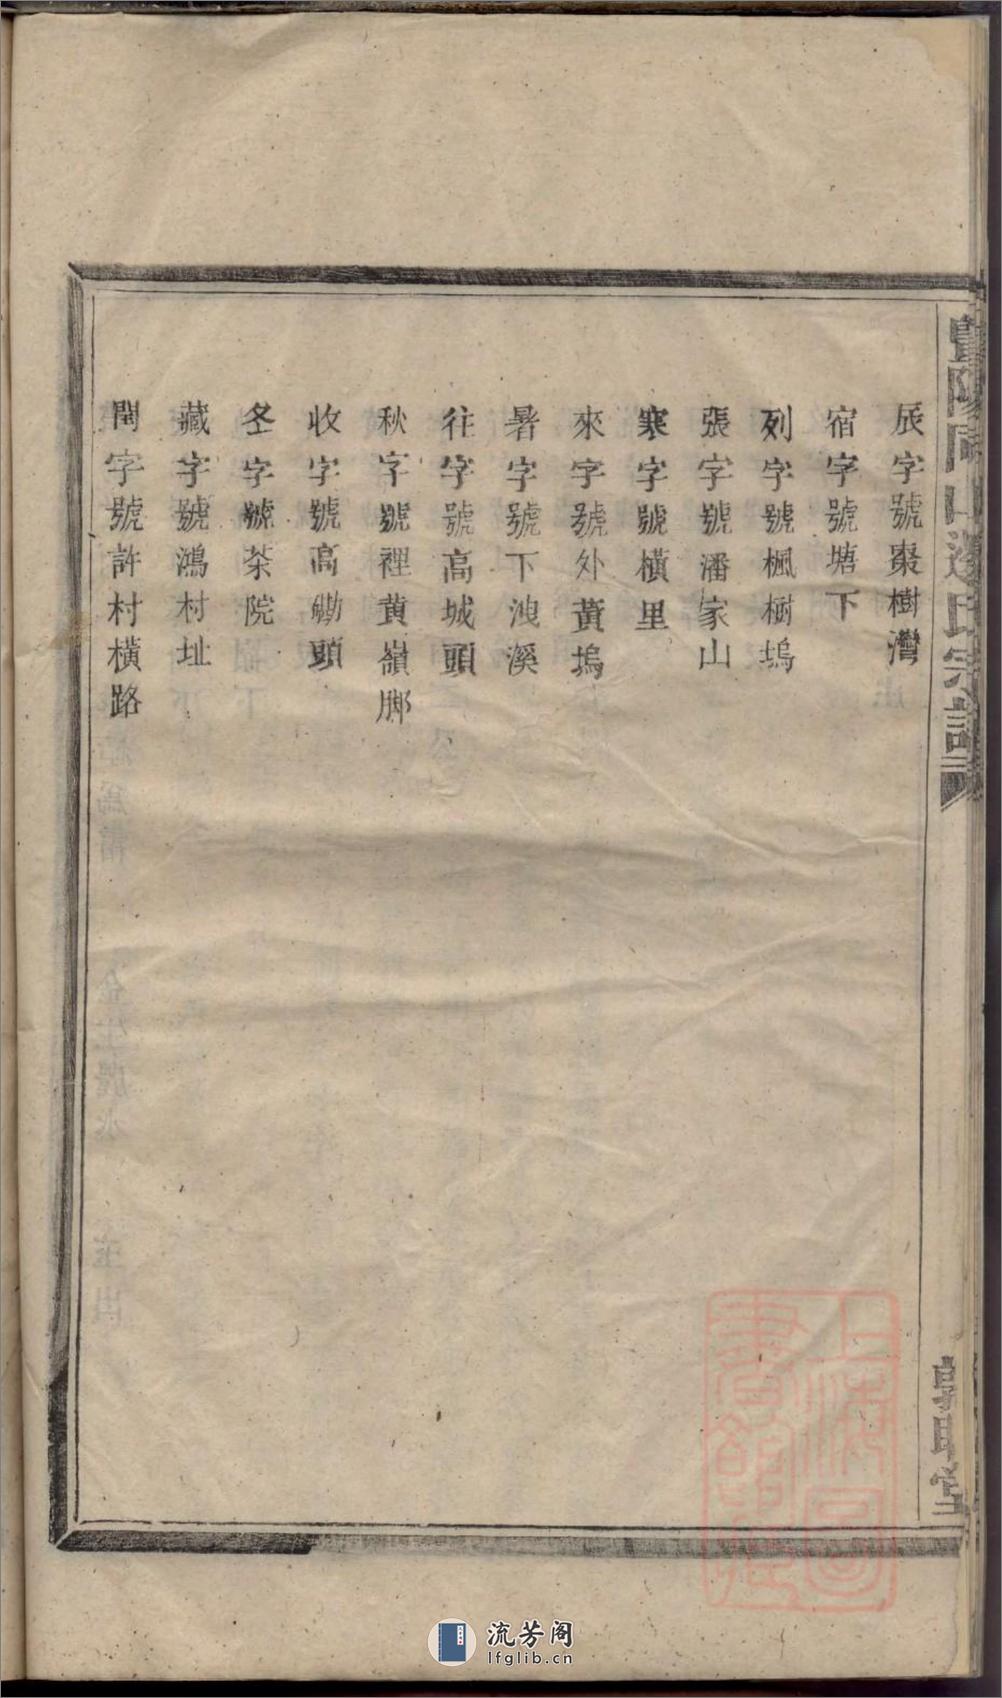 辰字號棗樹灣
宿字號塘下
列字號楓樹塢
張字號潘家山
寒字號橫里
來字號外黃塢
暑字號下洩溪
往字號高城頭
秋字號裡黃嶺脚
收字號高磡頭
冬字號茶院
藏字號鴻村址
閏字號許村橫路
暨陽同山邊氏宗譜
敦睦堂
上海圖書館藏
流芳阁
lfglib.cn